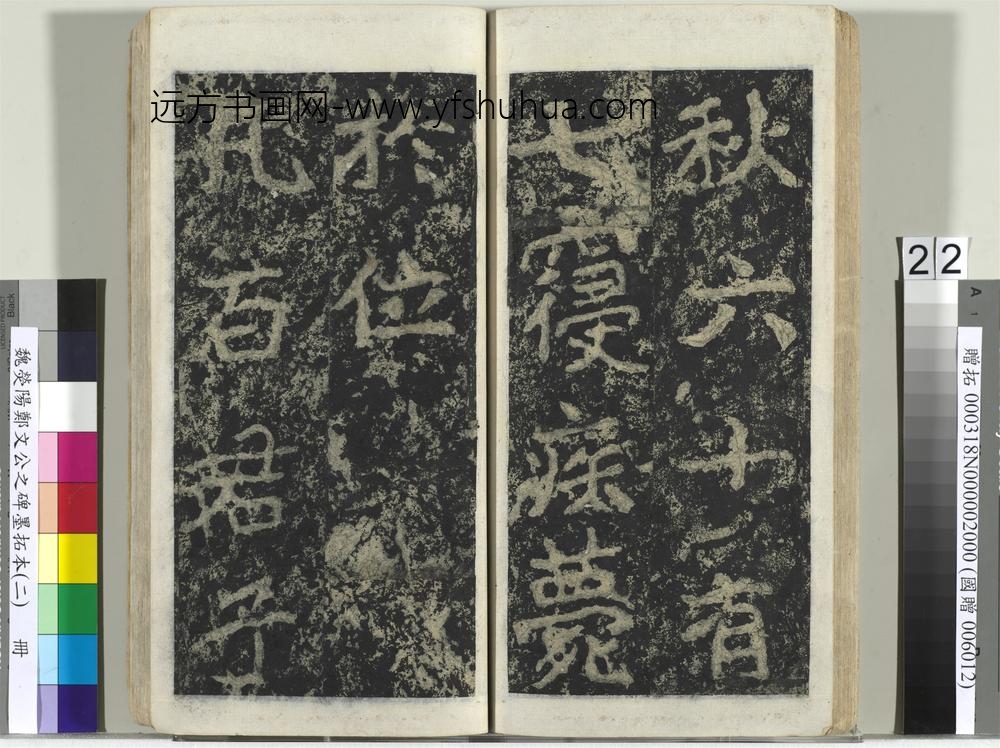 远方书画网-www.yfshuhua.com
秋六十有
七寑疾薨
於位
凡百君子
22
贈拓 000318N000002000 (國贈 006012)
魏熒陽鄭文公之碑墨拓本(二) 冊
Black
A
1